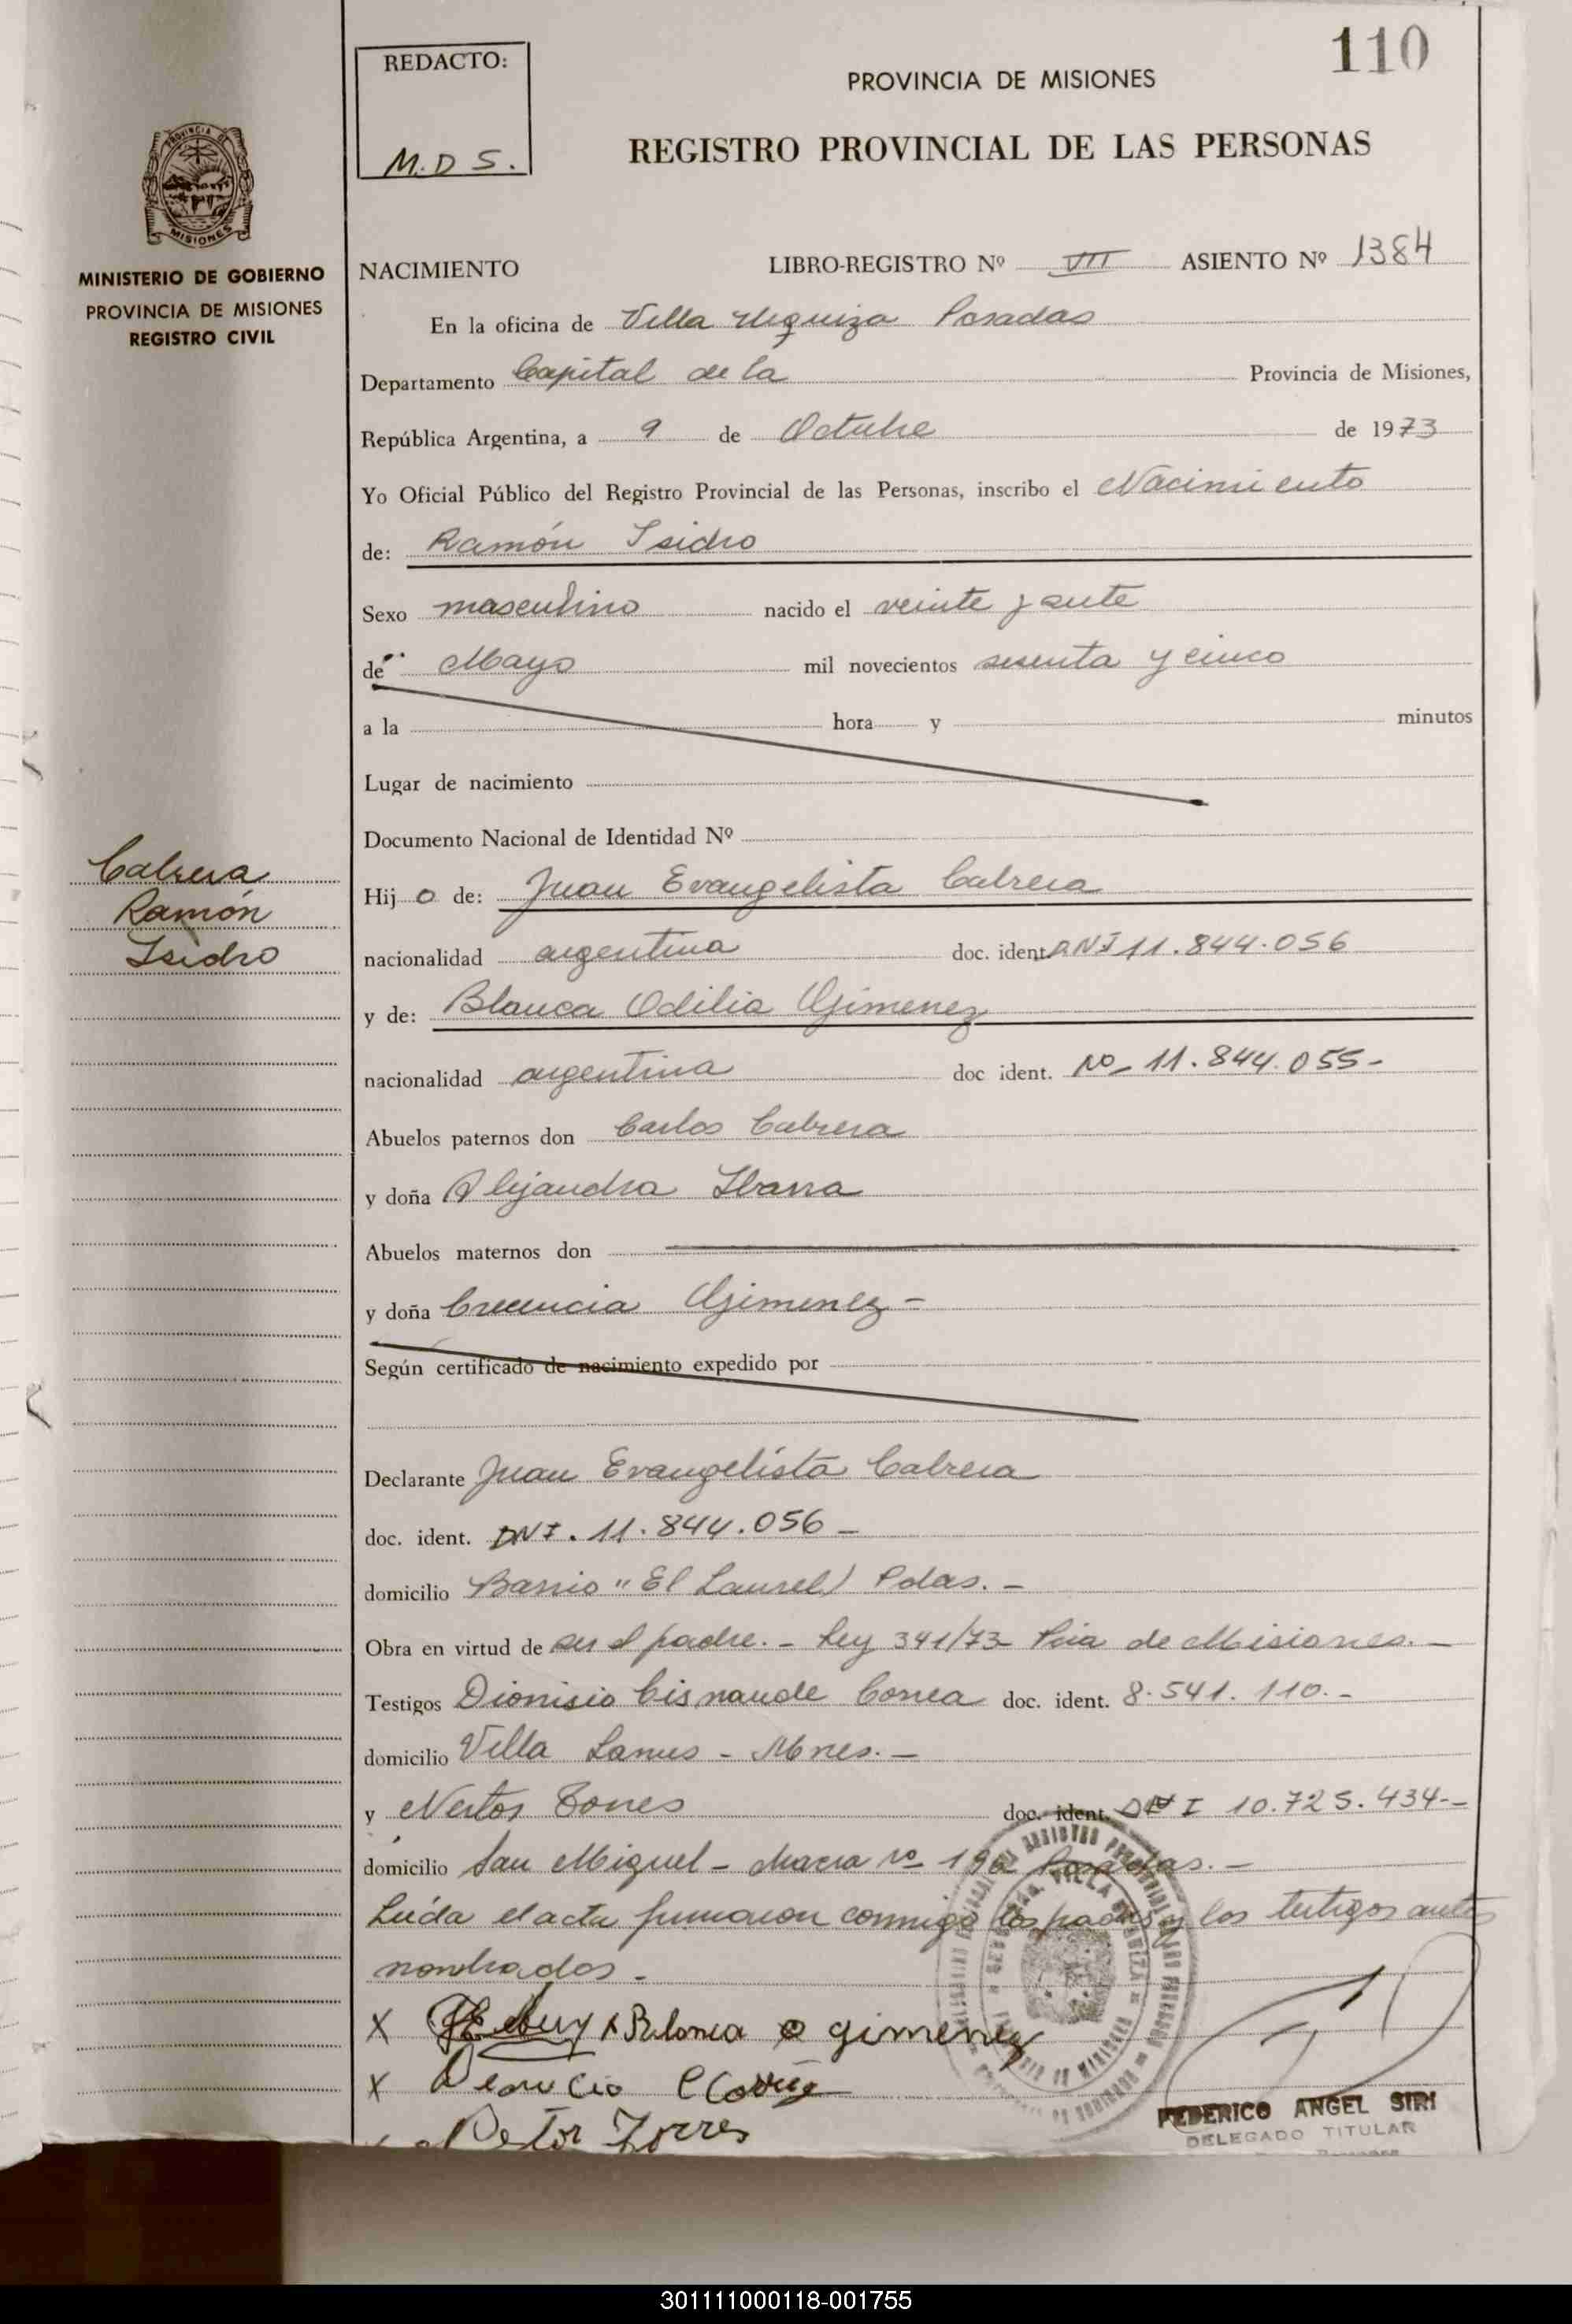 110
REDACTO:
M.D S.
PROVINCIA DE MISIONES
REGISTRO PROVINCIAL DE LAS PERSONAS
PROVINCIA DE
MISIONES
MINISTERIO DE GOBIERNO
PROVINCIA DE MISIONES
REGISTRO CIVIL
NACIMIENTO LIBRO-REGISTRO Nº VIII ASIENTO Nº 1384
En la oficina de Villa Urquiza Posadas
Departamento Capital de la Provincia de Misiones,
República Argentina, a 9 de Octubre de 1973
Yo Oficial Público del Registro Provincial de las Personas, inscribo el Nacimiento
de: Ramón Isidro
Sexo masculino nacido el veinte y siete
de Mayo mil novecientos sesenta y cinco
a la hora y minutos
Lugar de nacimiento
Documento Nacional de Identidad Nº
Cabrera
Ramón
Isidro
Hij o de: Juan Evangelista Cabrera
nacionalidad argentina doc. ident. DNI 11.844.056
y de: Blanca Odilia Gimenez
nacionalidad argentina doc ident. Nº 11.844.055-
Abuelos paternos don Carlos Cabrera
y doña Alejandra Ibarra
Abuelos maternos don
y doña Crecencia Gimenez -
Según certificado de nacimiento expedido por
Declarante Juan Evangelista Cabrera
doc. ident. DNI. 11.844.056 -
domicilio Barrio "El Laurel) Pdas. -
Obra en virtud de ser el padre. - Ley 341/73 Pcia de Misiones. -
Testigos Dionisio Correa doc. ident. 8.541.110.-
domicilio Villa Lanus - Mnes. -
y Nestor Torres doc. ident. DNI 10.725.434--
domicilio San Miguel - chacra nº Posadas. -
Leída el acta firmaron conmigo los padres y los testigos antes
nombrados -
X x Blanca o gimenez
X
Nestor Torres
FEDERICO ANGEL SIRI
DELEGADO TITULAR
301111000118-001755